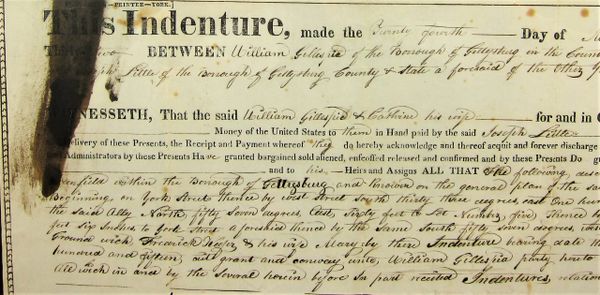 PRINTER—YORK.
This Indenture, made the Twenty fourth Day of
Two BETWEEN William Gillespie of the Borough of Gettysburg in the Coun
Joseph Little of the Borough of Gettysburg County & State aforesaid of the Other
NESSETH, That the said William Gillespie & Cathrine his wife for and in
Money of the United States to them in Hand paid by the said Joseph Little
Delivery of these Presents, the Receipt and Payment whereof they do hereby acknowledge and thereof acquit and forever discharge
Administrators by these Presents Have granted bargained sold aliened, enfeoffed released and confirmed and by these Presents Do gra
and to his Heirs and Assigns ALL THAT The following desc
within the Borough of Gettysburg and known on the general plan of the sa
Beginning on York Street thence by West Street South thirty three degrees East One hun
the said Ally North fifty Seven degrees, East, Sixty feet to Lot Number five, thence by
feet Six Inches to York Street aforesaid thence by the Same South fifty Seven degrees, west
Ground wich Frederick & his wife Mary by there Indenture bearing date th
hundred and fifteen, grant and convey unto William Gillespie party hereto
All wich in and by the Several herein before in part recited Indentures, relation